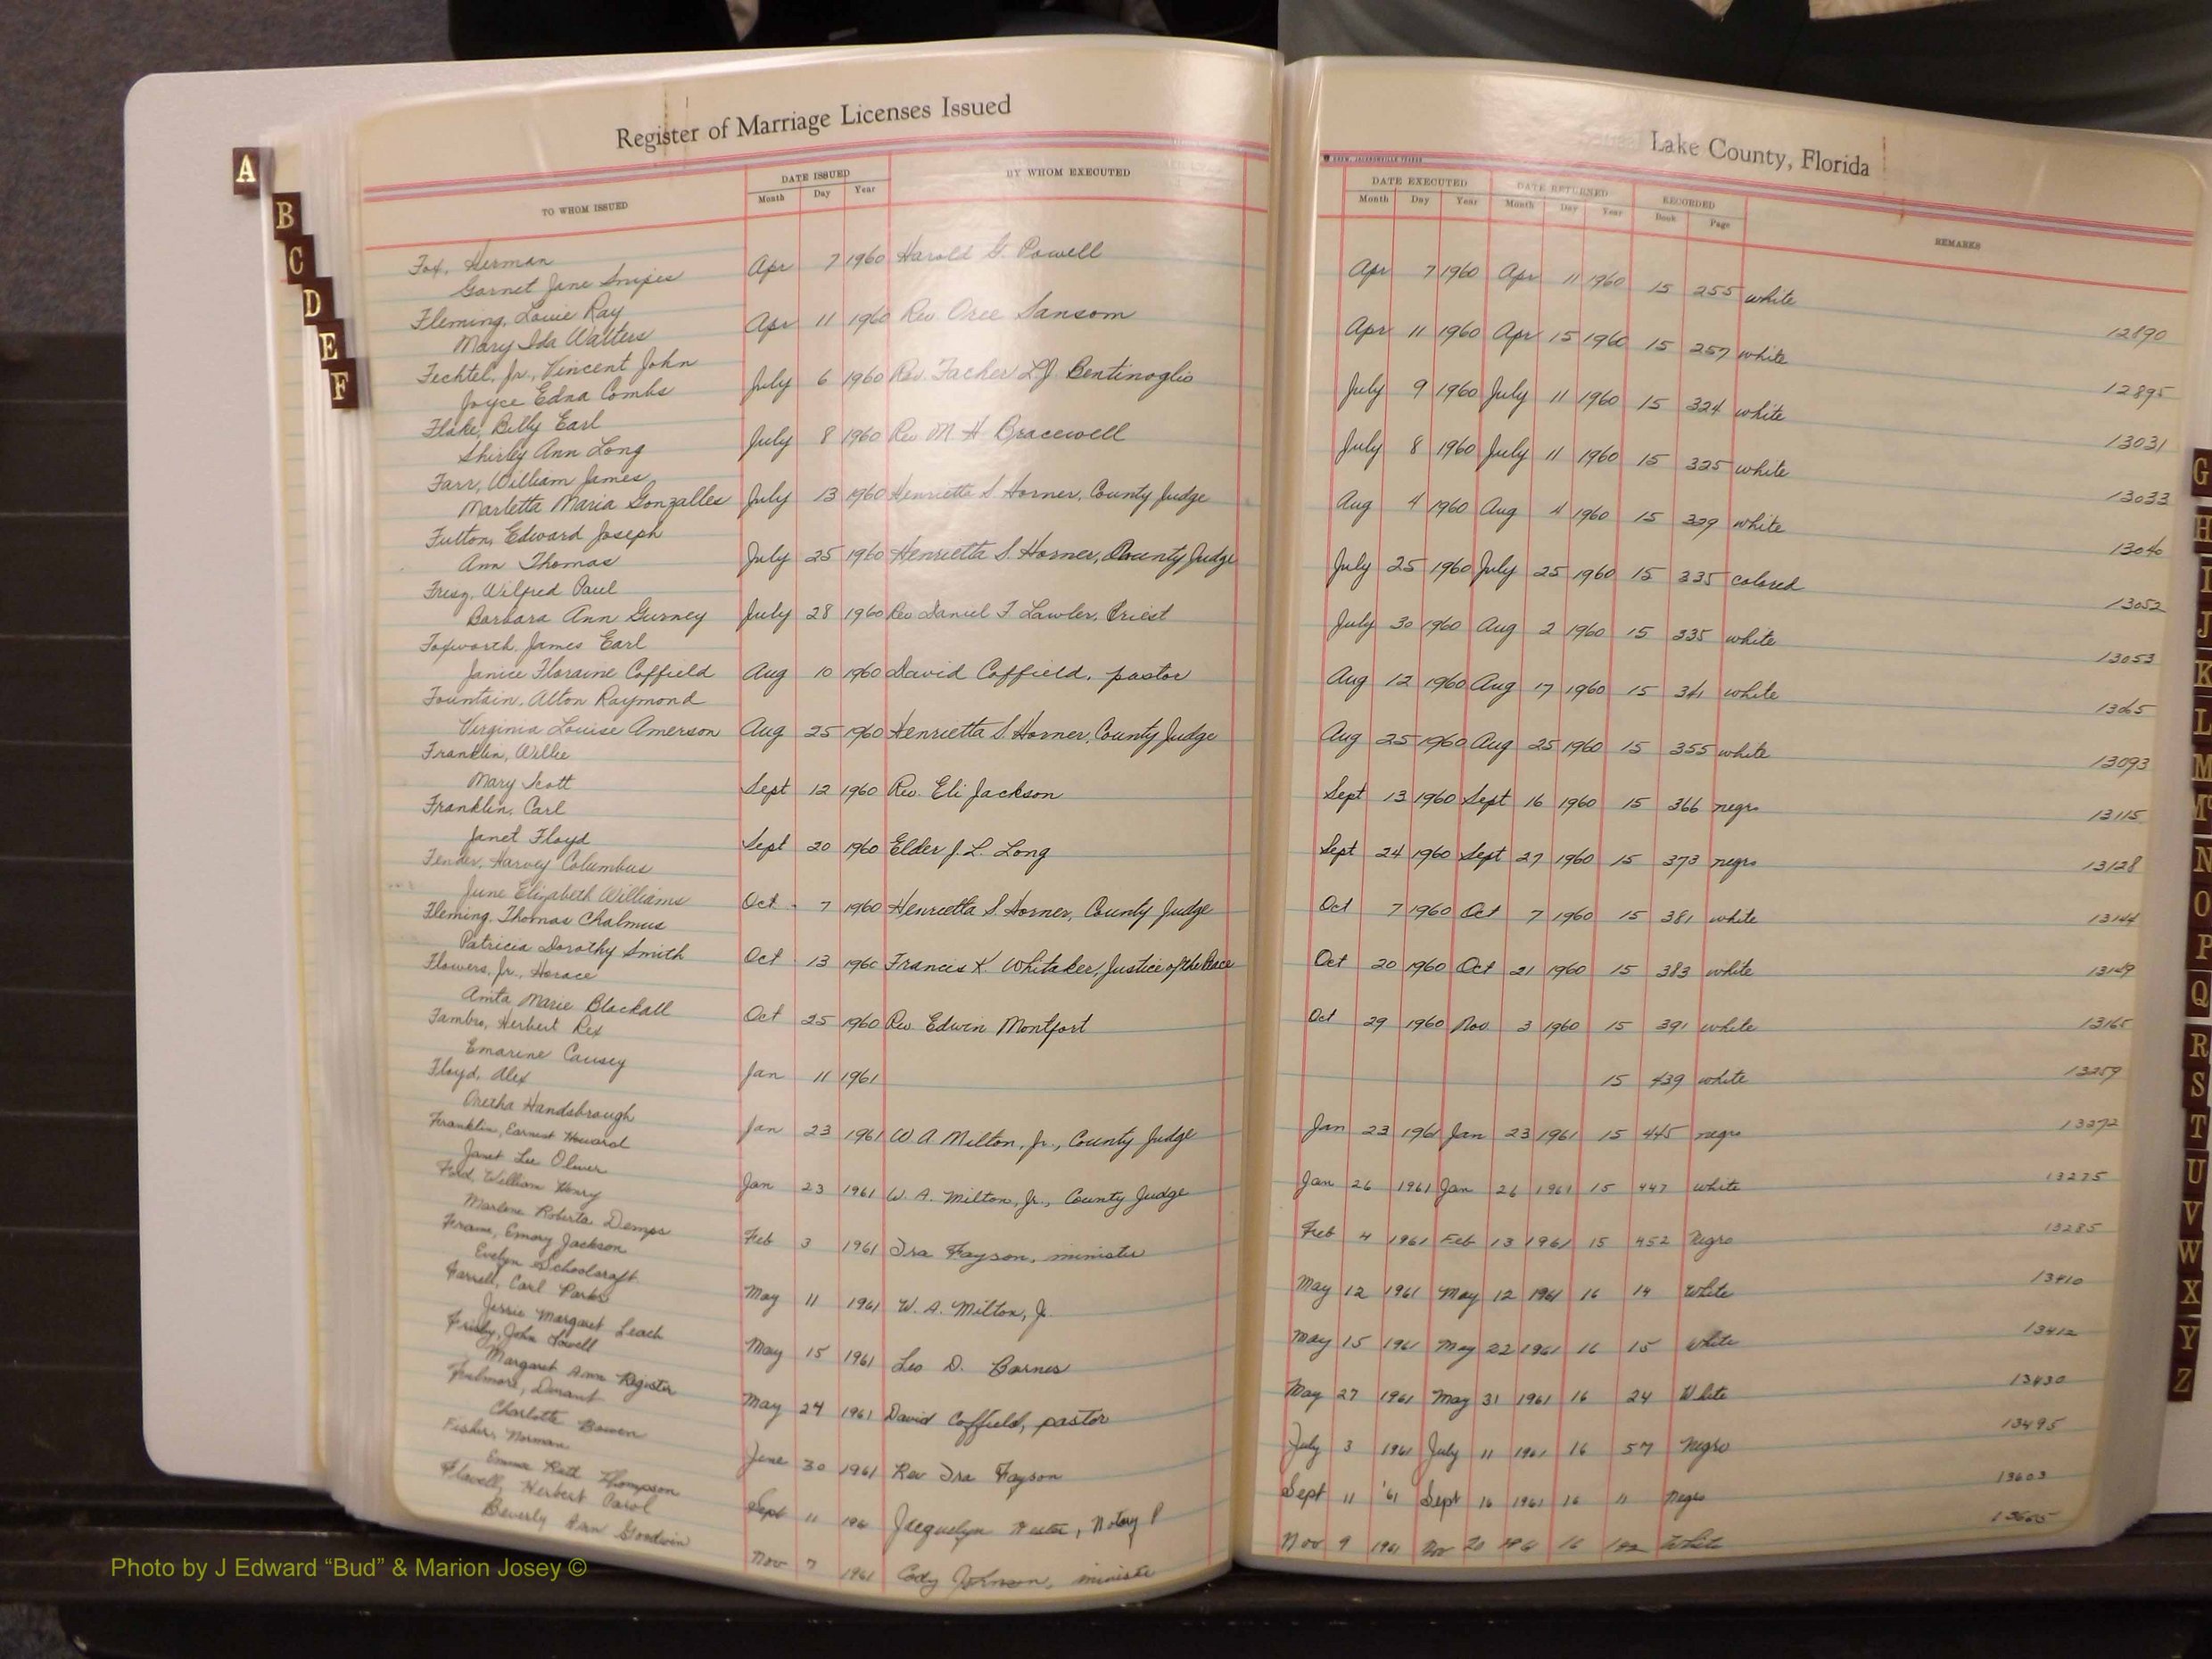 Register of Marriage Licenses Issued
Lake County, Florida
TO WHOM ISSUED DATE ISSUED Month Day Year BY WHOM EXECUTED DATE EXECUTED Month Day Year DATE RETURNED Month Day Year RECORDED Book Page REMARKS
Fox, Herman
Garnet Jane Snipes Apr 7 1960 Harold G. Powell Apr 7 1960 Apr 11 1960 15 255 white 12890
Fleming, Louie Ray
Mary Ida Watters Apr 11 1960 Rev. Oree Sansom Apr 11 1960 Apr 15 1960 15 257 white 12895
Fechtel, Jr., Vincent John
Joyce Edna Combs July 6 1960 Rev. Facher L.J. Bentinoglio July 9 1960 July 11 1960 15 324 white 13031
Flake, Billy Earl
Shirley Ann Long July 8 1960 Rev M H Bracewell July 8 1960 July 11 1960 15 325 white 13033
Farr, William James
Marletta Maria Gonzalles July 13 1960 Henrietta S. Horner, County Judge Aug 4 1960 Aug 4 1960 15 339 white 13040
Fulton, Edward Joseph
Ann Thomas July 25 1960 Henrietta S. Horner, County Judge July 25 1960 July 25 1960 15 335 colored 13052
Wilfred Paul
Barbara Ann Gurney July 28 1960 Rev Daniel F Lawler, Priest July 30 1960 Aug 2 1960 15 335 white 13053
Foxworth, James Earl
Janice Floraine Coffield Aug 10 1960 David Coffield, pastor Aug 12 1960 Aug 17 1960 15 341 white 13065
Fountain, Alton Raymond
Virginia Louise Amerson Aug 25 1960 Henrietta S. Horner, County Judge Aug 25 1960 Aug 25 1960 15 355 white 13093
Franklin, Willie
Mary Scott Sept 12 1960 Rev. Eli Jackson Sept 13 1960 Sept 16 1960 15 366 negro 13115
Franklin, Carl
Janet Floyd Sept 20 1960 Elder J. L. Long Sept 24 1960 Sept 27 1960 15 373 negro 13128
Fender, Harvey Columbus
June Elizabeth Williams Oct 7 1960 Henrietta S. Horner, County Judge Oct 7 1960 Oct 7 1960 15 381 white 13144
Fleming, Thomas Chalmus
Patricia Dorothy Smith Oct 13 1960 Francis K. Whitaker, Justice of the Peace Oct 20 1960 Oct 21 1960 15 383 white 13149
Flowers, Jr., Horace
Anita Marie Blackall Oct 25 1960 Rev Edwin Montfort Oct 29 1960 Nov 3 1960 15 391 white 13165
Fambro, Herbert Rex
Emarine Causey Jan 11 1961 15 439 white 13259
Floyd, Alex
Oretha Handsbrough Jan 23 1961 W A Milton, Jr., County Judge Jan 23 1961 Jan 23 1961 15 445 negro 13272
Franklin, Earnest Howard
Janet Lee Oliver Jan 23 1961 W. A. Milton, Jr., County Judge Jan 26 1961 Jan 26 1961 15 447 white 13275
Ford, William Henry
Marlene Roberta Demps Feb 3 1961 Ira Fayson, minister Feb 4 1961 Feb 13 1961 15 452 Negro 13285
Frame, Emory Jackson
Evelyn Schoolcraft May 11 1961 W. A. Milton, Jr May 12 1961 May 12 1961 16 14 White 13410
Farrell, Carl Parks
Jessie Margaret Leach May 15 1961 Leo D. Barnes May 15 1961 May 22 1961 16 15 White 13412
Frisby, John Lowell
Margaret Ann Register May 24 1961 David Coffield, pastor May 27 1961 May 31 1961 16 24 White 13430
Fulmore, Durant
Charlotte Bowen June 30 1961 Rev Ira Fayson July 3 1961 July 11 1961 16 57 Negro 13495
Fisher, Norman
Emma Ruth Thompson Sept 11 196 Jacquelyn Notary P Sept 11 '61 Sept 16 1961 16 11 Negro 13603
Flavell, Herbert Carol
Beverly Ann Goodwin Nov 7 1961 Cody Johnson, ministe Nov 9 1961 Nov 20 16 White 13665
A
B
C
D
E
F
G
H
I
J
K
L
M
Mc
N
O
P
Q
R
S
T
U
V
W
X
Y
Z
Photo by J Edward “Bud” & Marion Josey ©